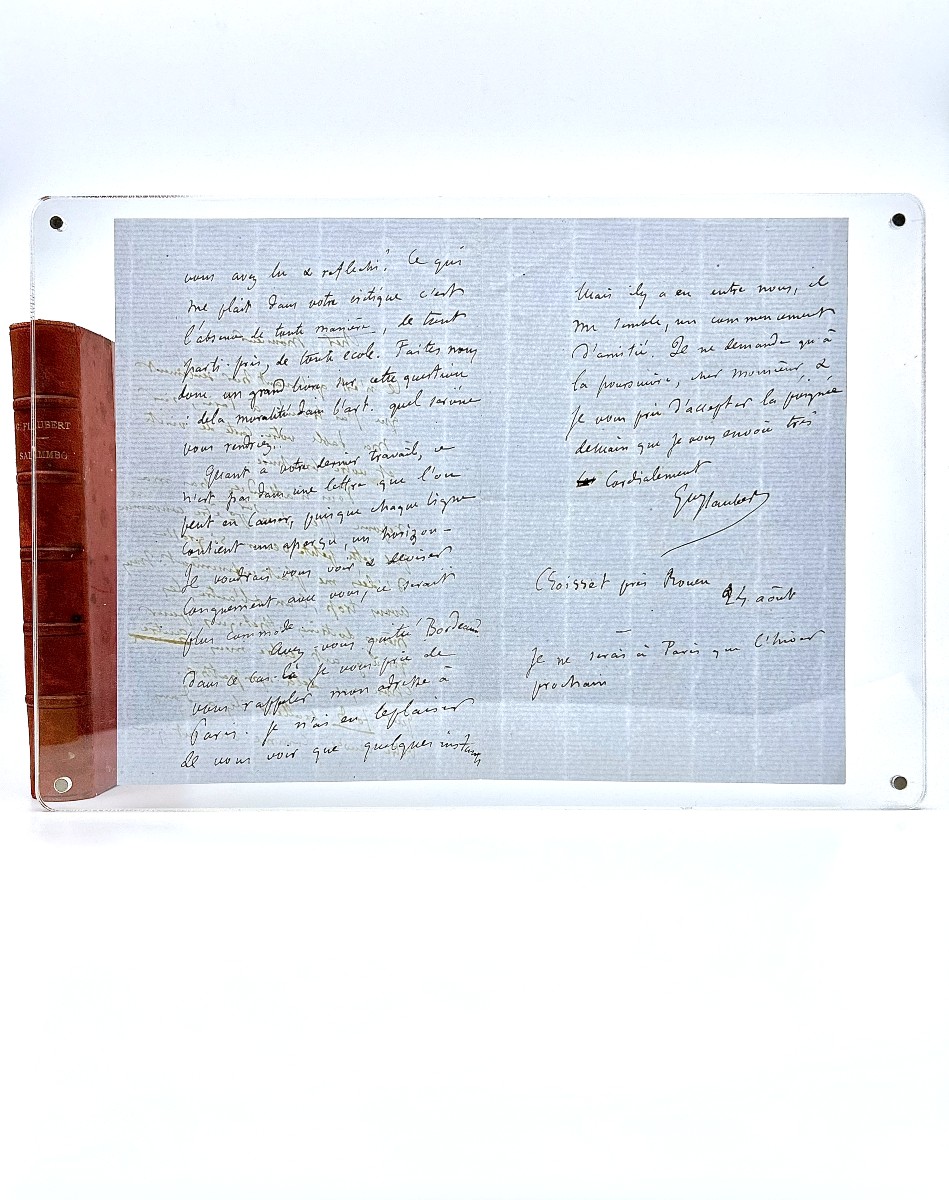 G. FLAUBERT
SALAMMBO
vous avez lu & reflechi ! Ce qui
me plait dans votre critique c'est
l'absence de toute manière, de tout
parti-pris, de toute ecole. Faites nous
donc un grand livre sur cette question
de la moralité dans l'art. quel service
vous rendriez
Quant à votre dernier travail, ce
n'est pas dans une lettre que l'on
peut en causer, puisque chaque ligne
contient un aperçu, un horizon –
Je voudrais vous voir & deviser
longuement avec vous, ce serait
plus commode. Avez-vous quitté Bordeaux
dans ce cas-là je vous prie de
vous rappeler mon adresse à
Paris. Je n'ai eu le plaisir
de vous voir que quelques instans
Mais il y a eu entre nous, il
me semble, un commencement
d'amitié. Je ne demande qu'à
la poursuivre, cher monsieur, &
je vous prie d'accepter la poignée
de main que je vous envoie très
Cordialement
G Flaubert
Croisset près Rouen 24 août
Je ne serai à Paris que l'hiver
prochain